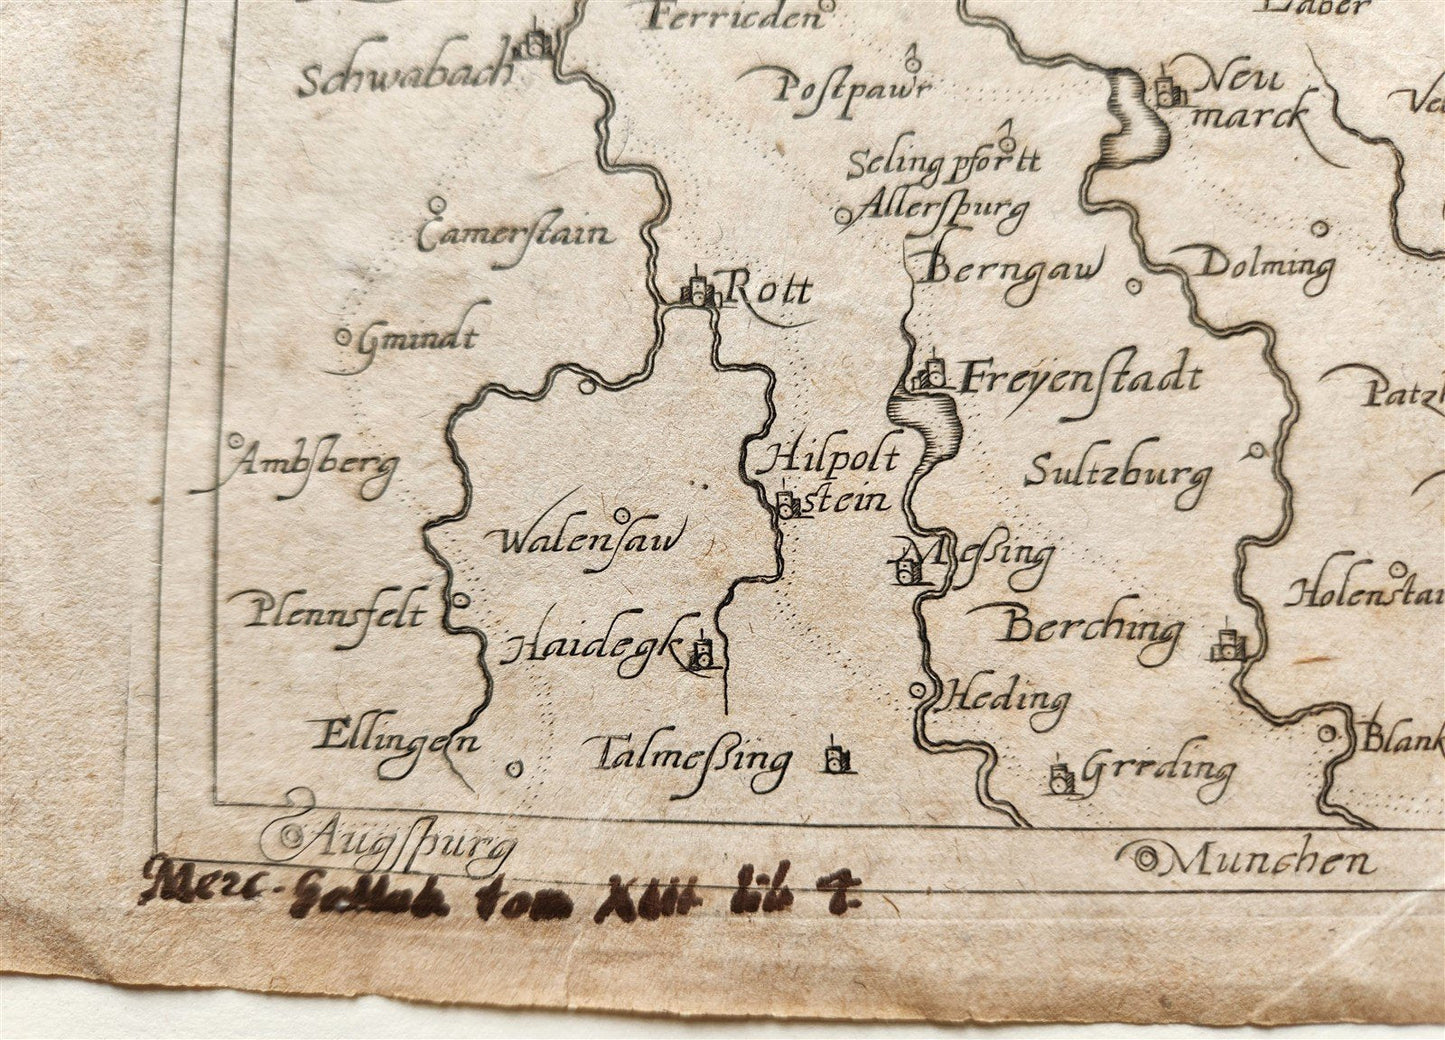 Ferrieden
Laber
Schwabach
Postpawr
Neu
marck
Seling pfortt
Allerspurg
Camerstain
Berngaw
Dolming
Rott
Gmindt
Freyenstadt
Ambsberg
Hilpolt
stein
Sultzburg
Walensaw
Meßing
Plennsfelt
Haidegk
Berching
Heding
Ellingen
Talmeßing
Blank
Greding
Augspurg
Munchen
Merc. Gallob tom XIII lib